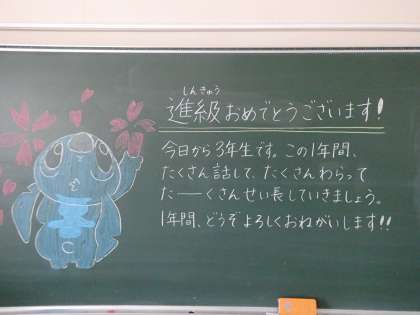 しんきゅう
進級おめでとうございます!
今日から3年生です。この1年間、
たくさん話して、たくさんわらって
たーーくさんせい長していきましょう。
1年間、どうぞよろしくおねがいします!!